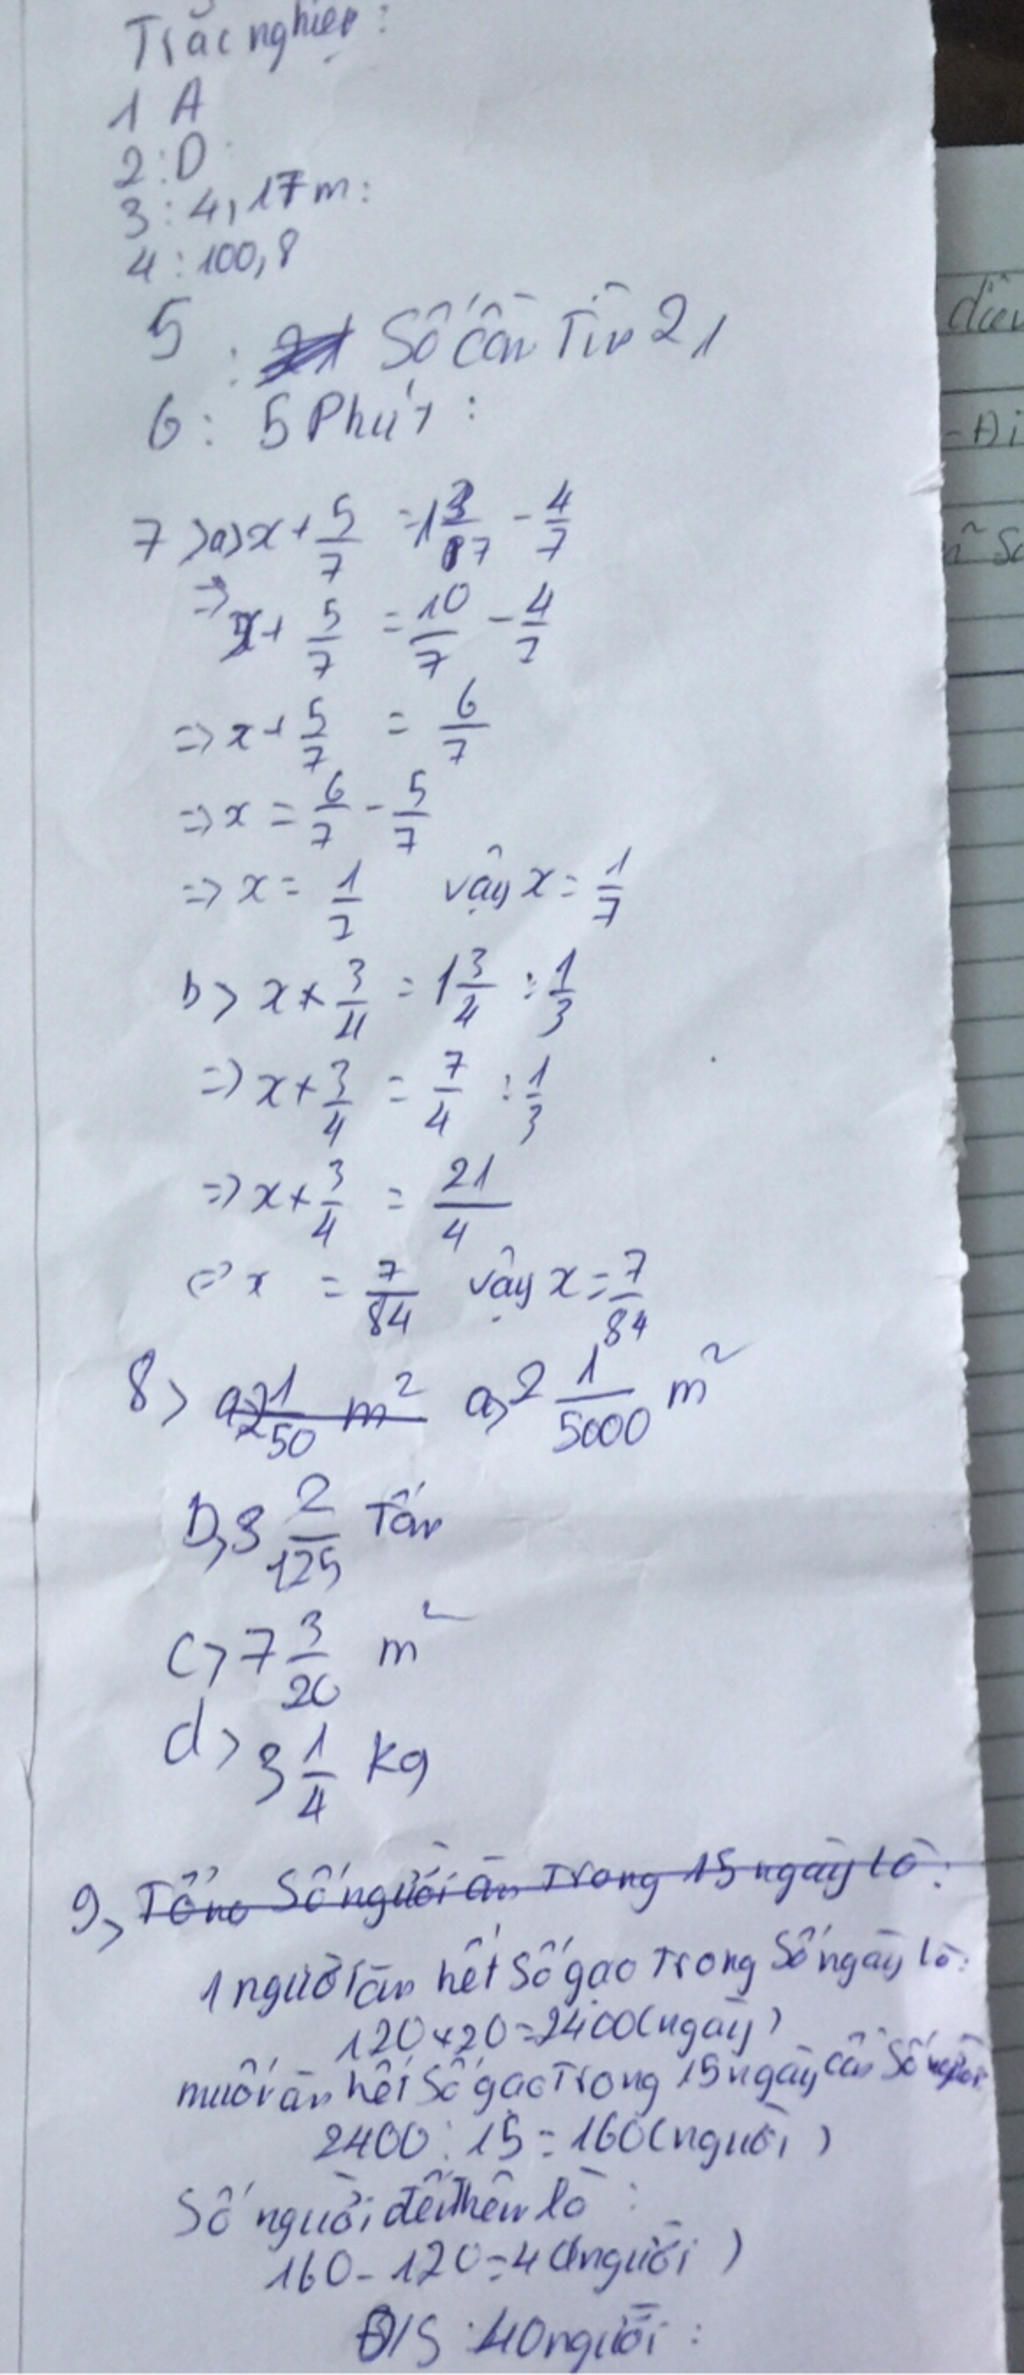 Trắc nghiệp:
1 A
2:D
3:4,17m:
4:100,8
5: Số cần Tìm 21
6: 5 Phút:
7>a>x+5/7 =1 3/7 - 4/7
=> x+ 5/7 = 10/7 - 4/7
=> x+ 5/7 = 6/7
=> x = 6/7 - 5/7
=> x = 1/7 vậy x= 1/7
b> x × 3/4 = 1 3/4 : 1/3
=> x × 3/4 = 7/4 : 1/3
=> x × 3/4 = 21/4
=> x = 7/84 vậy x= 7/84
8> a>2 1/50 m² a>2 1/5000 m²
b,3 2/125 Tấn
c>7 3/20 m²
d>3 1/4 kg
9, Tổng Số người ăn Trong 15 ngày là:
1 người ăn hết số gạo Trong Số ngày là:
120×20=2400(ngày)
muối ăn hết Số gạo Trong 15 ngày cần Số người
2400:15=160(người)
Số người đến thêm là:
160-120=40(người)
Đ/S:40 người:
diện
-Đi